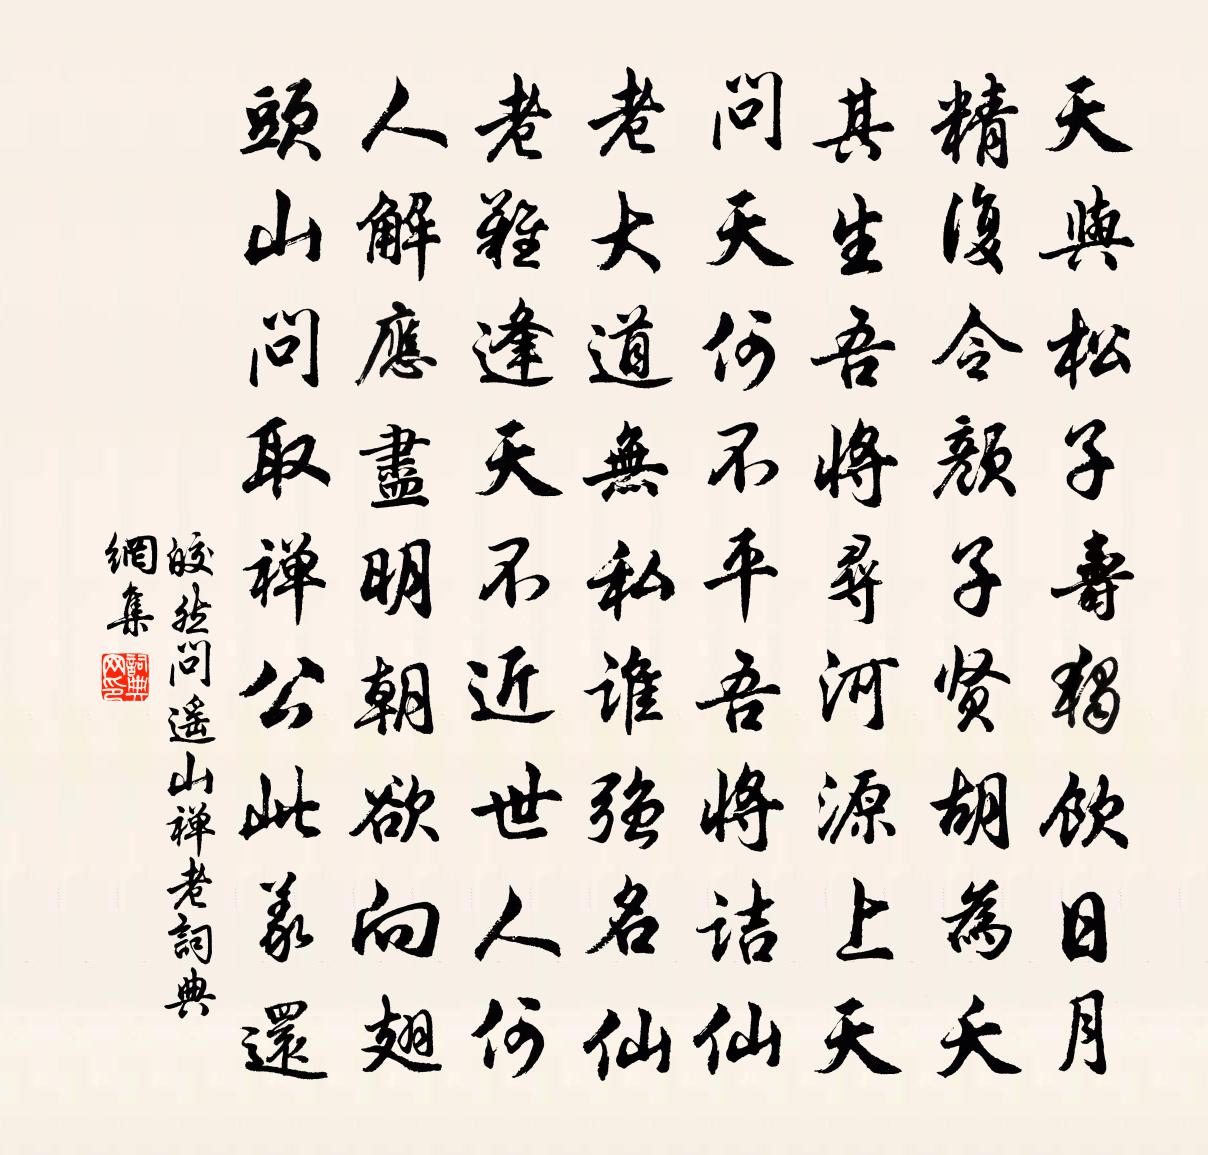 天與松子壽獨飲日月
精復令顏子贤胡為夭
其生吾將尋河源上天
問天何不平吾將詰仙
老大道無私誰強名仙
老難逢天不近世人何
人解應盡明朝欲向翅
頭山問取禅公此義還
皎然問遥山禅老詞典
網集
詞典
网印